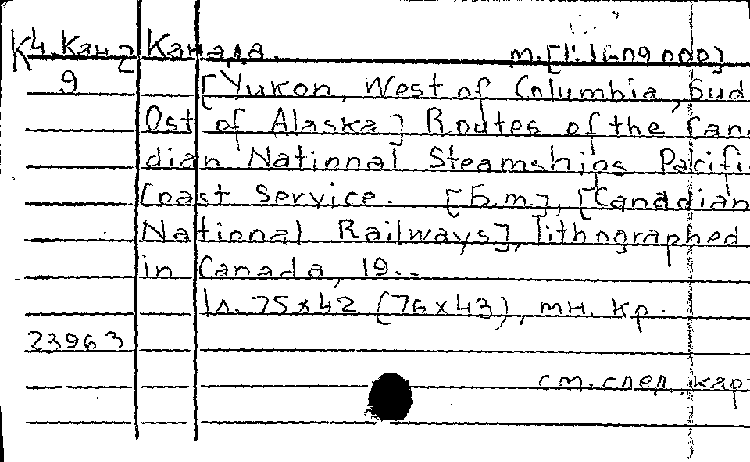 К4.Кан2 Канада. м.[1:1600 000]
9 [Yukon, West of Columbia, Sud
Ost of Alaska] Routes of the Cana
dian National Steamships Pacifi
Coast Service. [Б.м], [Canadian
National Railways], lithographed
in Canada, 19..
1л. 75x42 (76x43), мн. кр.
23963
см. след. кар